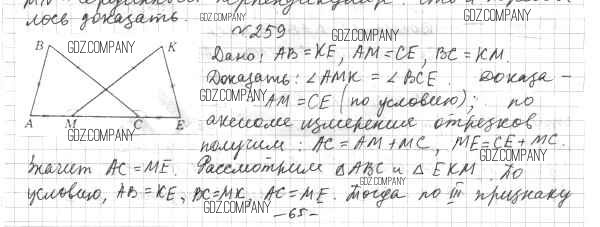 лось доказать.
GDZ.COMPANY
№259
GDZ.COMPANY
B GDZ.COMPANY K
Дано: AB=KE, AM=CE, BC=KM.
Доказать: ∠AMK = ∠BCE. Доказа-
GDZ.COMPANY AM=CE (по условию); по
аксиоме измерения отрезков
A M C E
GDZ.COMPANY
получим: AC=AM+MC, ME=CE+MC.
GDZ.COMPANY
Значит AC=ME. Рассмотрим △ABC и △EKM. По
GDZ.COMPANY
условию, AB=KE, BC=MK, AC=ME. Тогда по III признаку
GDZ.COMPANY
-65-